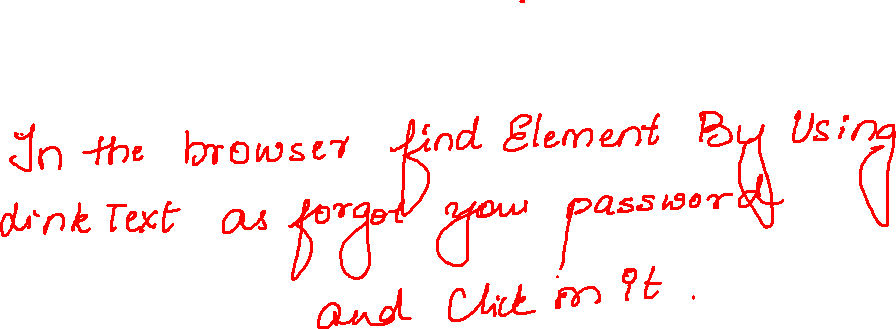 In the browser find Element By Using
linkText as forgot your password
and Click on it .